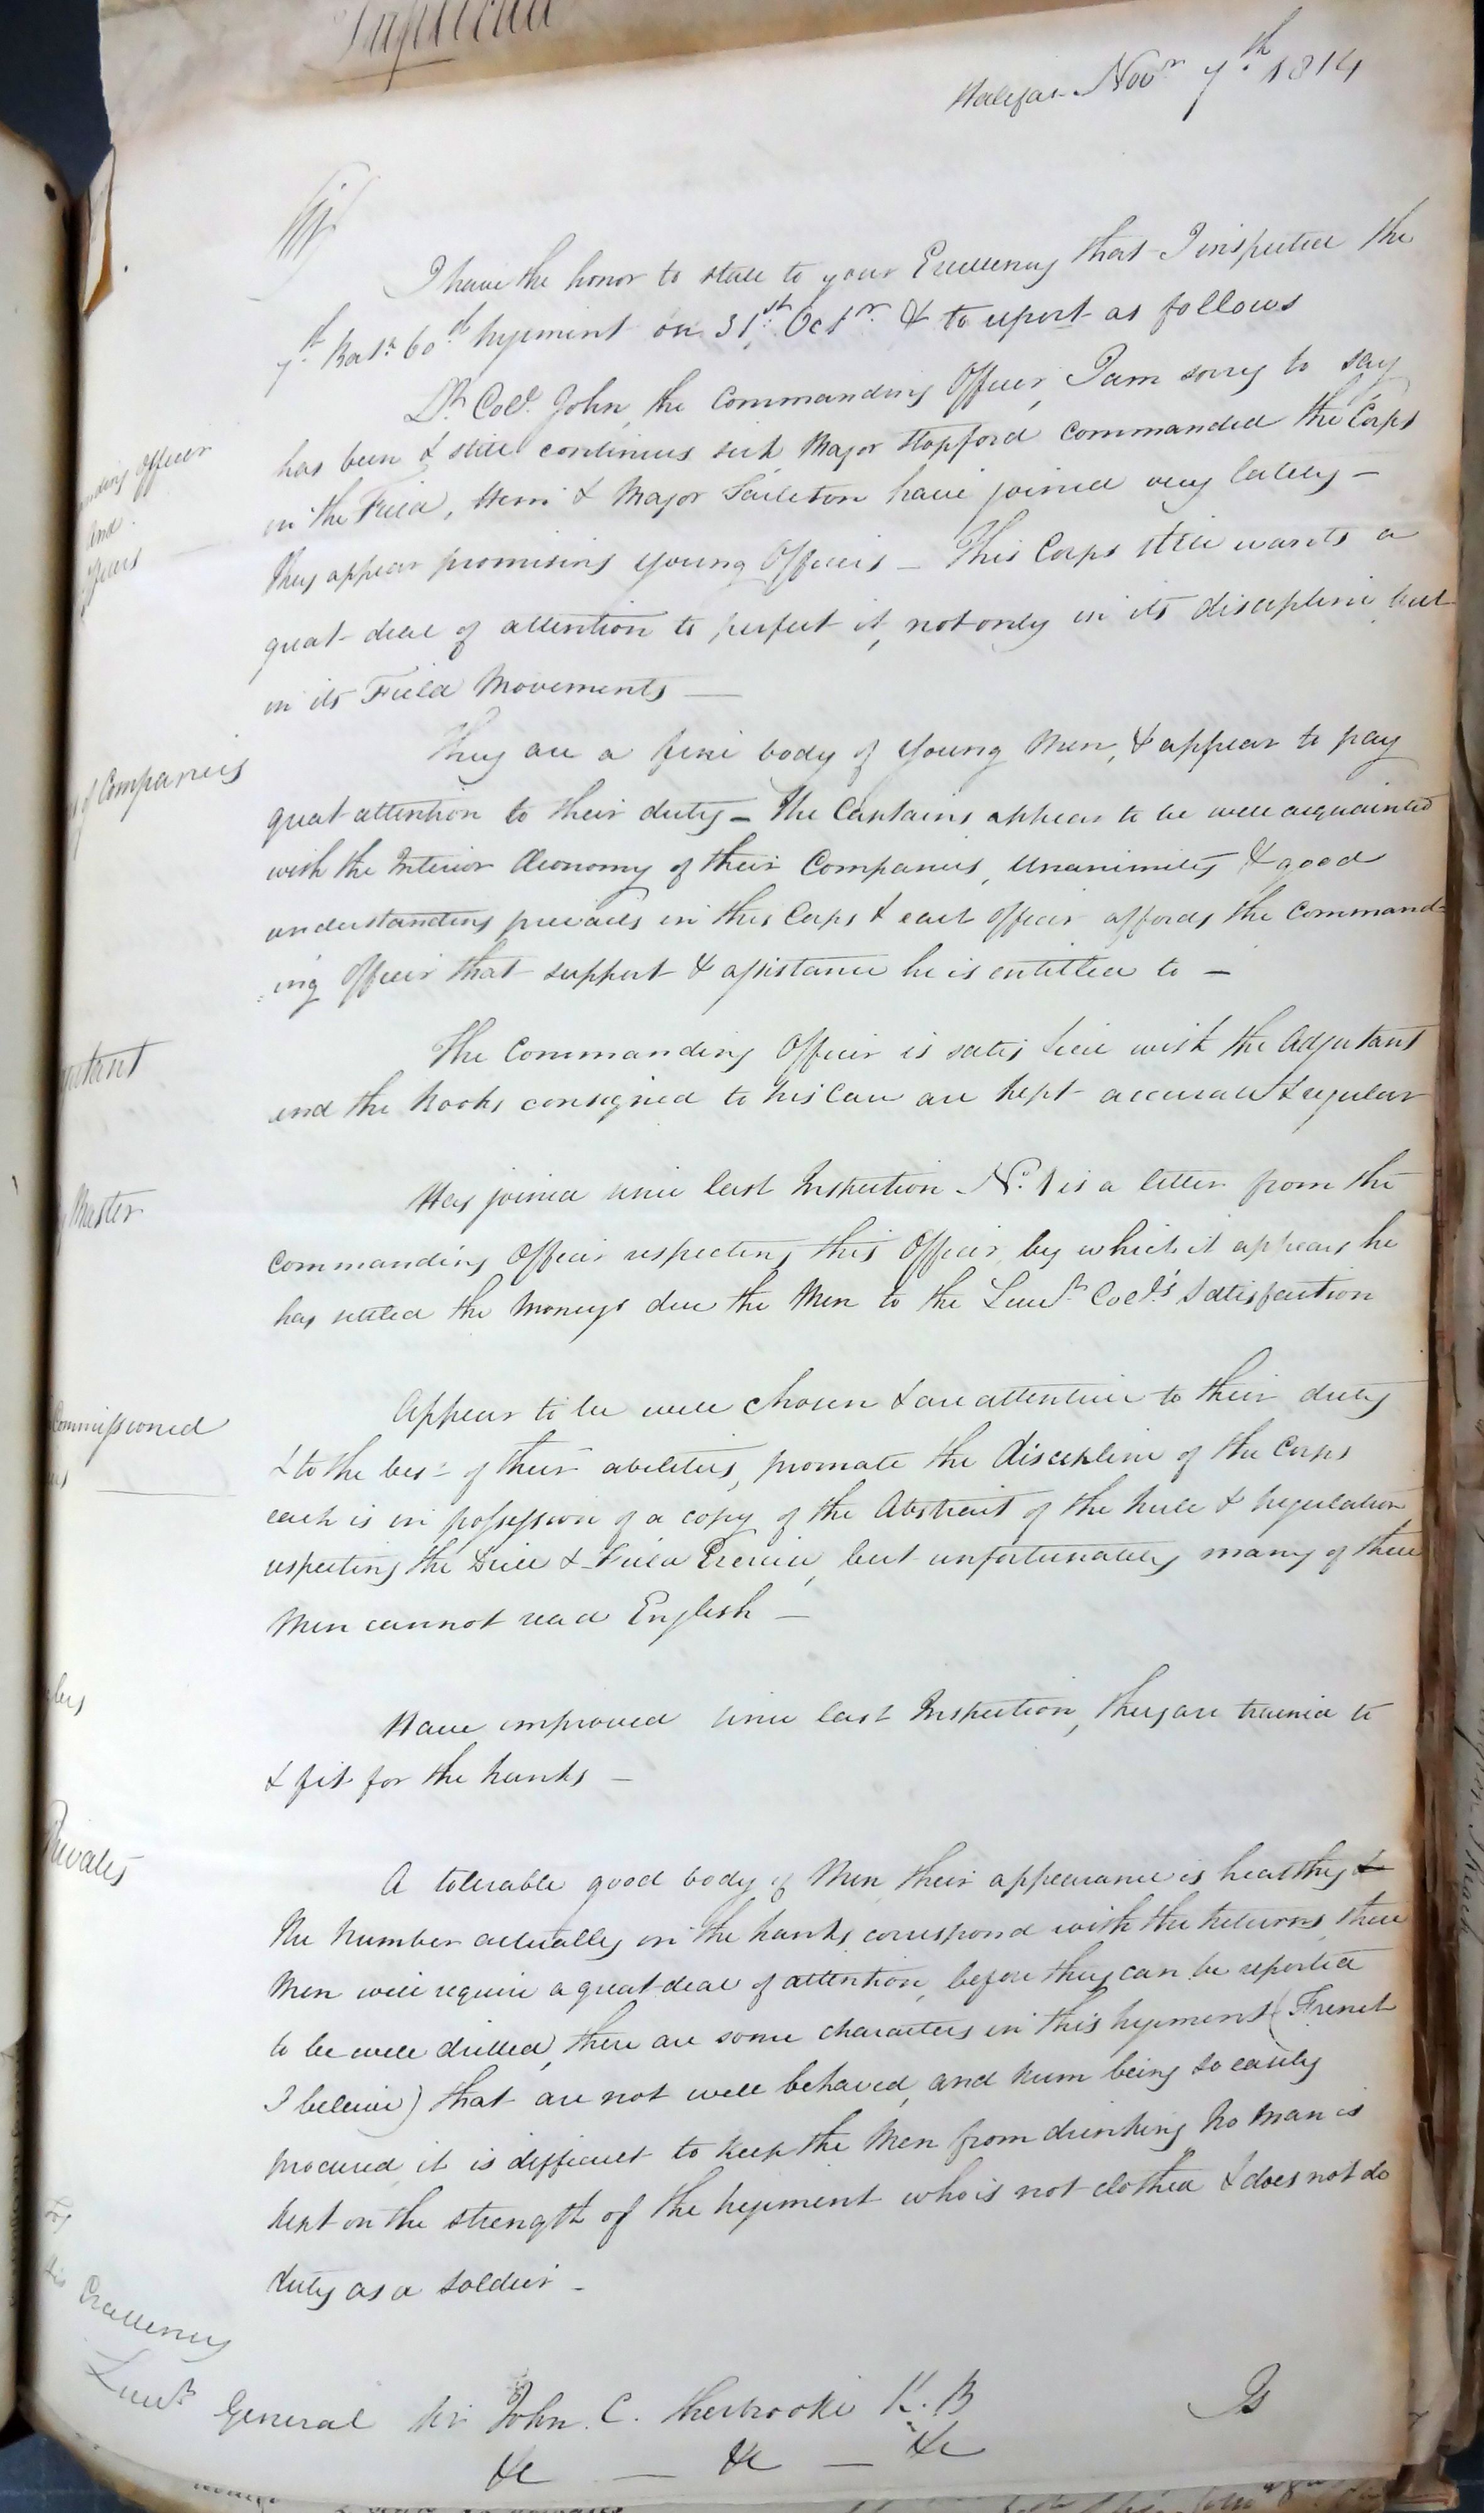 Duplicate
Halifax Novr 7th 1814
Sir
I have the honor to state to your Excellency that I inspected the
7th Batn 60th Regiment on 31st Octr & to report as follows
nding Officer
And
Lt Col John, the Commanding Officer, I am sorry to say
has been & still continues sick Major Stopford Commanded the Corps
in the Field, Him & Major Tarleton have joined very lately —
they appear promising young Officers — This Corps still wants a
great deal of attention to perfect it, not only in its discipline, but
in its Field Movements —
of Companies
They are a fine body of Young Men, & appear to pay
great attention to their duty — The Captains appear to be well acquainted
with the Interior Œconomy of their Companies, Unanimity & good
understanding prevails in this Corps & each Officer affords the Command-
ing Officer that support & assistance he is entitled to —
utant
The Commanding Officer is satisfied with the Adjutant
and the Books consigned to his Care are kept accurate & regular
Master
Has joined since last Inspection No. 1 is a letter from the
Commanding Officer respecting this Officer, by which it appears he
has settled the Moneys due the Men to the Lieut Coel's Satisfaction
Commissioned
Appear to be well chosen & are attentive to their duty
& to the best of their abilities, promate the discipline of the Corps
each is in possession of a copy of the Abstract of the Rule & Regulation
respecting the Drill & Field Exercise, but unfortunately many of these
Men cannot read English —
Have improved since last Inspection, they are trained to
& fit for the Ranks —
Privates
A tolerable good body of Men their appearance is healthy &
the Number actually in the Ranks correspond with the Returns, these
Men will require a great deal of attention, before they can be reported
to be well drilled, there are some characters in this Regiment (French
I beleive) that are not well behaved, and Rum being so easily
procured it is difficult to keep the Men from drinking No Man is
kept on the strength of the Regiment who is not clothed & does not do
duty as a Soldier —
His Excellency
Lieut General Sir John C. Sherbrooke K. B
&c — &c — &c
Is